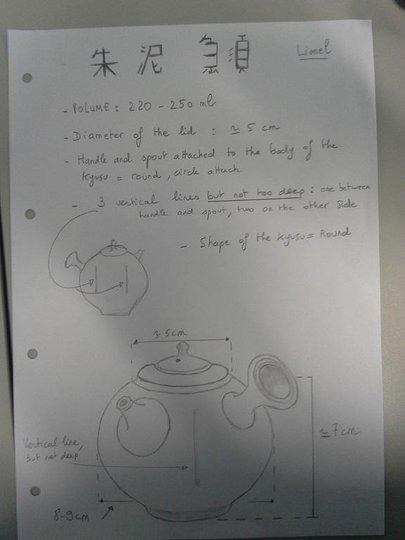 朱泥 急須
Lionel
- Volume : 220 - 250 ml
- Diameter of the lid : ≃ 5 cm
- Handle and spout attached to the body of the
kyusu = round, circle attach
- 3 vertical lines but not too deep : one between
handle and spout, two on the other side
- Shape of the kyusu = Round
≃ 5cm
≃ 7cm
Vertical line,
but not deep
8-9cm